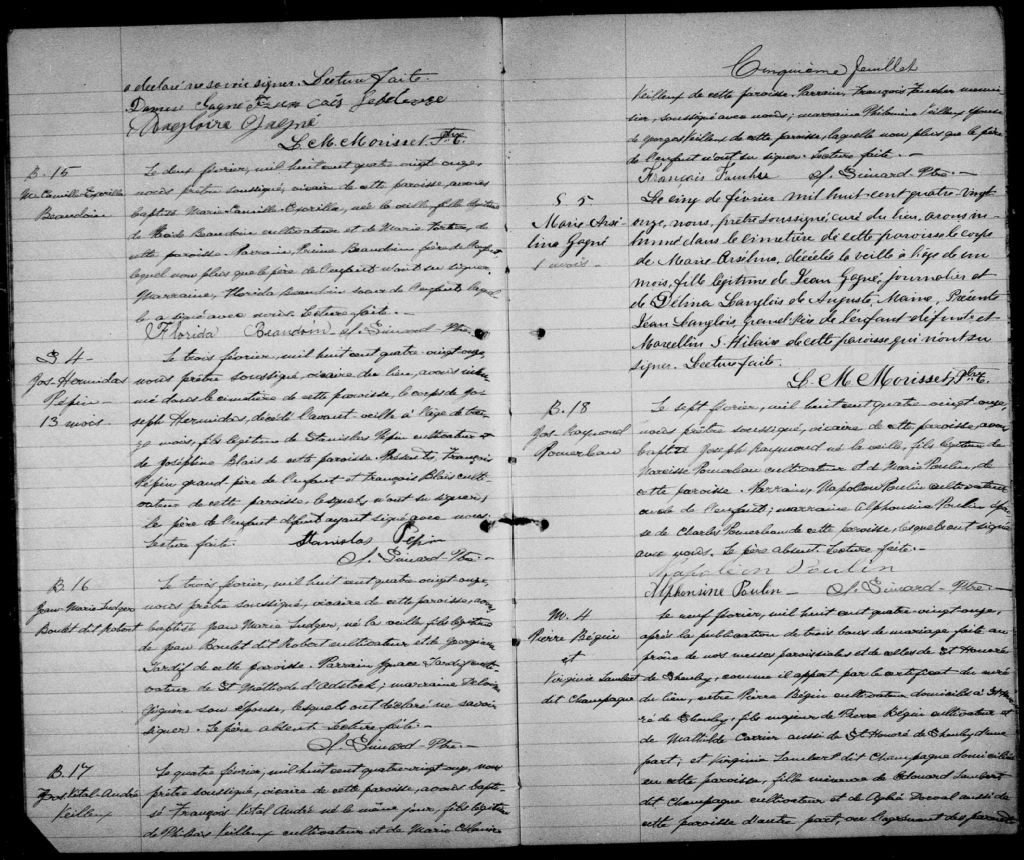 a déclaré ne savoir signer. Lecture faite.
Damase Gagné François
Gagné
L. M. Morisset, Ptre.
B. 15
M. Camille-Exerilla
Beaudoin
Le deux février, mil huit cent quatre vingt onze,
nous prêtre soussigné, vicaire de cette paroisse, avons
baptisé Marie Camille-Exerilla, née la veille, fille légitime
de Beaudoin cultivateur et de Marie Fortier, de
cette paroisse. Parrain, Beaudoin frère de l'enfant
lequel non plus que le père de l'enfant n'a su signer.
Marraine, Florida Beaudoin soeur de l'enfant laquel-
le a signé avec nous. Lecture faite.-
Florida Beaudoin J. Simard-Ptre.-
S. 4-
Jos-Hermidas
Pépin-
13 mois
Le trois février, mil huit cent quatre vingt onze,
nous prêtre soussigné, vicaire du lieu, avons inhu-
mé dans le cimetière de cette paroisse, le corps de Jo-
seph Hermidas, décédé l'avant veille à l'âge de trei-
ze mois, fils légitime de Stanislas Pépin cultivateur et
de Joséphine Blais de cette paroisse. Présents, François
Pépin grand père de l'enfant et François Blais culti-
vateur de cette paroisse, lesquels n'ont su signer;
le père de l'enfant défunt ayant signé avec nous.
Lecture faite. Stanislas Pépin
J. Simard-Ptre.-
B. 16
Jean-Marie Ludger
Boulet dit Robert
Le trois février, mil huit cent quatre vingt onze,
nous prêtre soussigné, vicaire de cette paroisse, avons
baptisé Jean Marie Ludger, né la veille fils légitime
de Jean Boulet dit Robert cultivateur et de Georgina
Tardif de cette paroisse. Parrain Ignace Tardif culti-
vateur de St Méthode d'Adstock; marraine
son épouse, lesquels ont déclaré ne savoir
signer. Le père absent. Lecture faite.-
J. Simard-Ptre.-
B. 17
Frs Vital-André
Veilleux
Le quatre février, mil huit cent quatre-vingt onze, nous
prêtre soussigné, vicaire de cette paroisse, avons bapti-
sé François Vital André né le même jour, fils légitime
de Veilleux cultivateur et de Marie
Cinquième feuillet
Veilleux de cette paroisse. Parrain, François Faucher menui-
sier, soussigné avec nous; marraine Philomène Veilleux épouse
de Georges Veilleux de cette paroisse, laquelle non plus que le père
de l'enfant n'ont su signer. Lecture faite.-
François Faucher J. Simard-Ptre.-
S 5
Marie Arsé-
lina Gagné
1 mois-
Le cinq de février mil huit-cent quatre-vingt
onze, nous, prêtre soussigné curé du lieu, avons in-
humé dans le cimetière de cette paroisse le corps
de Marie Arsélina, décédée la veille à l'âge de un
mois, fille légitime de Jean Gagné, journalier et
de Délina Langlois de Augusta, Maine, Présents
Jean Langlois, grand-père de l'enfant défunt et
Marcellin St. Hilaire de cette paroisse qui n'ont su
signer. Lecture faite.
L. M. Morisset, Ptre.
B. 18
Jos-Raymond
Pomerleau
Le sept février, mil huit cent quatre vingt onze,
nous prêtre soussigné, vicaire de cette paroisse, avons
baptisé Joseph Raymond né la veille, fils légitime de
Narcisse Pomerleau cultivateur et de Marie Poulin, de
cette paroisse. Parrain, Napoléon Poulin cultivateur
oncle de l'enfant; marraine Alphonsine Poulin épou-
se de Charles Pomerleau de cette paroisse, lesquels ont signé
avec nous. Le père absent. Lecture faite.-
Napoléon Poulin
Alphonsine Poulin- J. Simard-Ptre.-
M. 4
Pierre Bégin
et
Virginie Lambert
dit Champagne
Le neuf février, mil huit cent quatre vingt onze,
après la publication de trois bans de mariage faite au
prône de nos messes paroissiales et de celles de St Honoré
de Shenley, comme il appert par le certificat du curé
du lieu, entre Pierre Bégin cultivateur domicilié à St Hono-
ré de Shenley, fils majeur de Pierre Bégin cultivateur et
de Mathilde Carrier aussi de St Honoré de Shenley d'une
part; et Virginie Lambert dit Champagne domiciliée
en cette paroisse, fille mineure de Edouard Lambert
dit Champagne cultivateur et de aussi de
cette paroisse d'autre part, vu l'agrément des parents